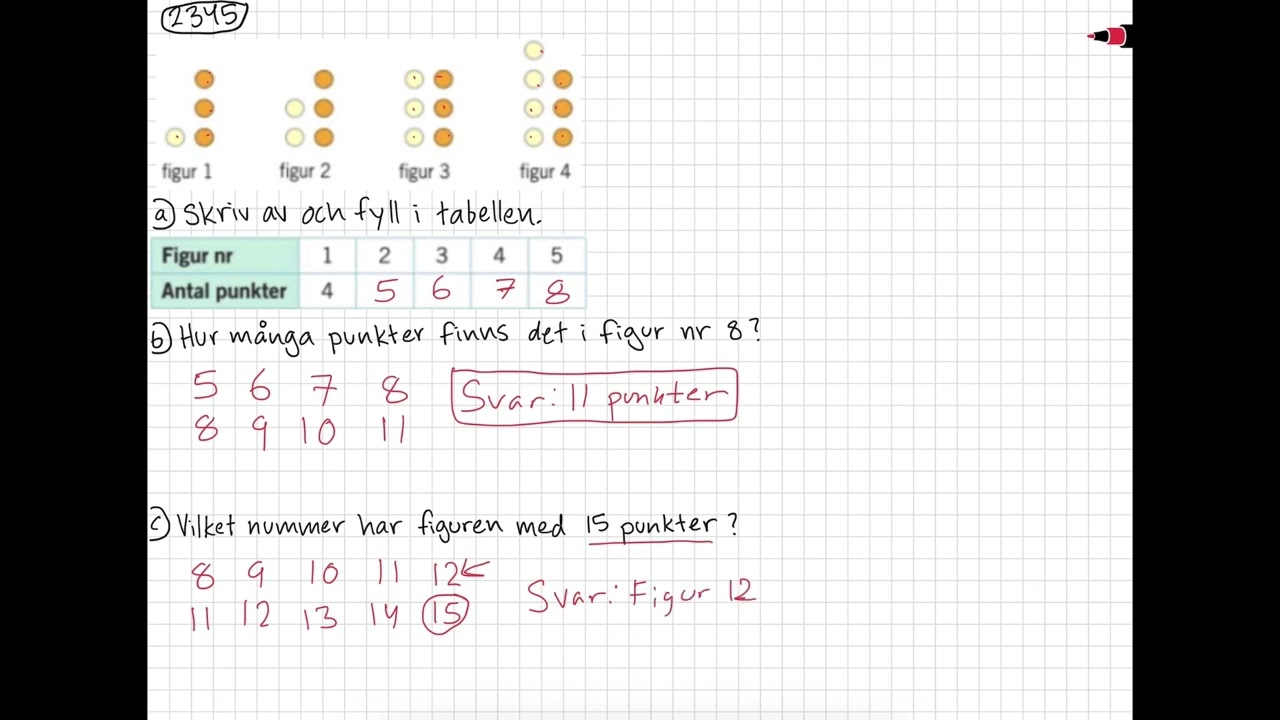 2345
figur 1 figur 2 figur 3 figur 4
a) Skriv av och fyll i tabellen.
Figur nr 1 2 3 4 5
Antal punkter 4 5 6 7 8
b) Hur många punkter finns det i figur nr 8?
5 6 7 8 Svar: 11 punkter
8 9 10 11
c) Vilket nummer har figuren med 15 punkter?
8 9 10 11 12 ←
11 12 13 14 15 Svar: Figur 12